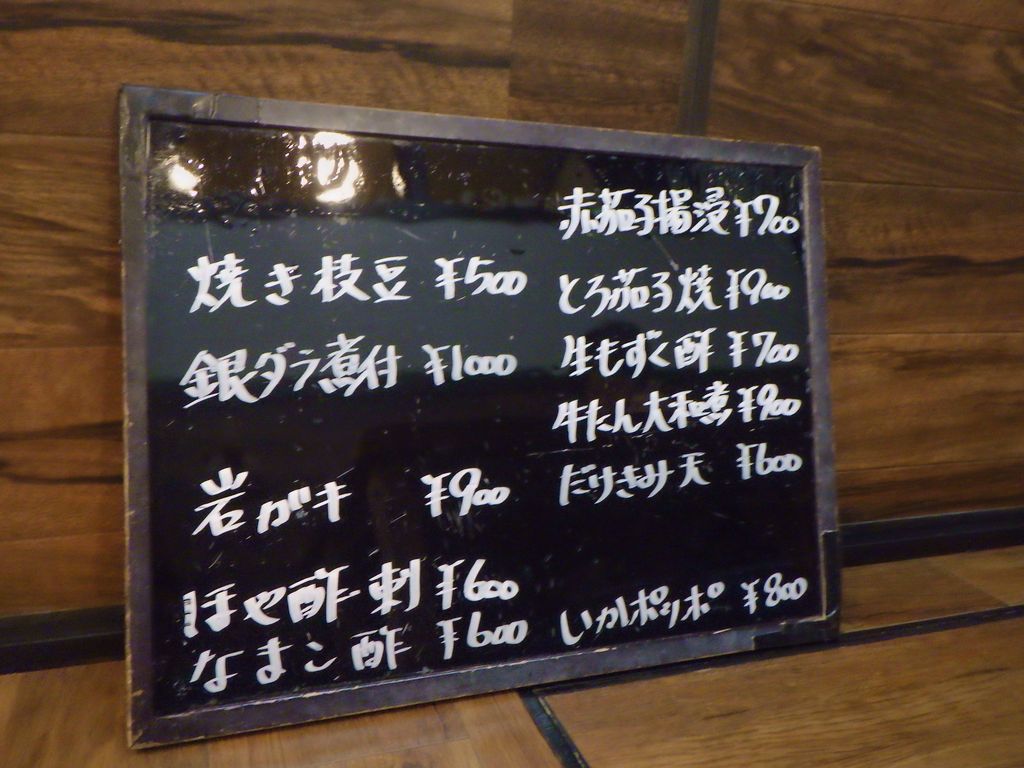 焼き枝豆 ¥500
銀ダラ煮付 ¥1000
岩ガキ ¥900
ほや酢・刺 ¥600
なまこ酢 ¥600
赤茄子揚浸 ¥700
とろ茄子焼 ¥900
生もずく酢 ¥700
牛たん大和煮 ¥900
だけきみ天 ¥600
いかポッポ ¥800